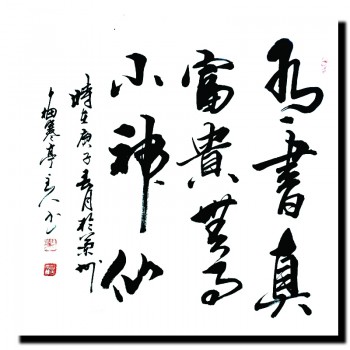 有書真
富貴無事
小神仙
時在庚子春月於蘭州
寒亭主人